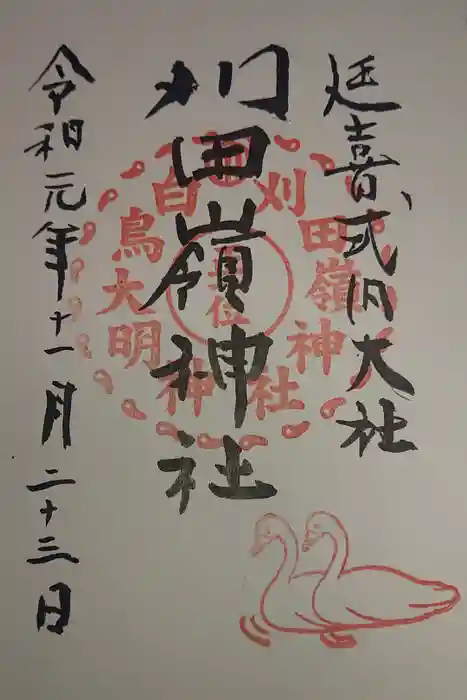 延喜式内大社
刈田嶺神社
令和元年十一月二十三日
刈田嶺神社
白鳥大明神